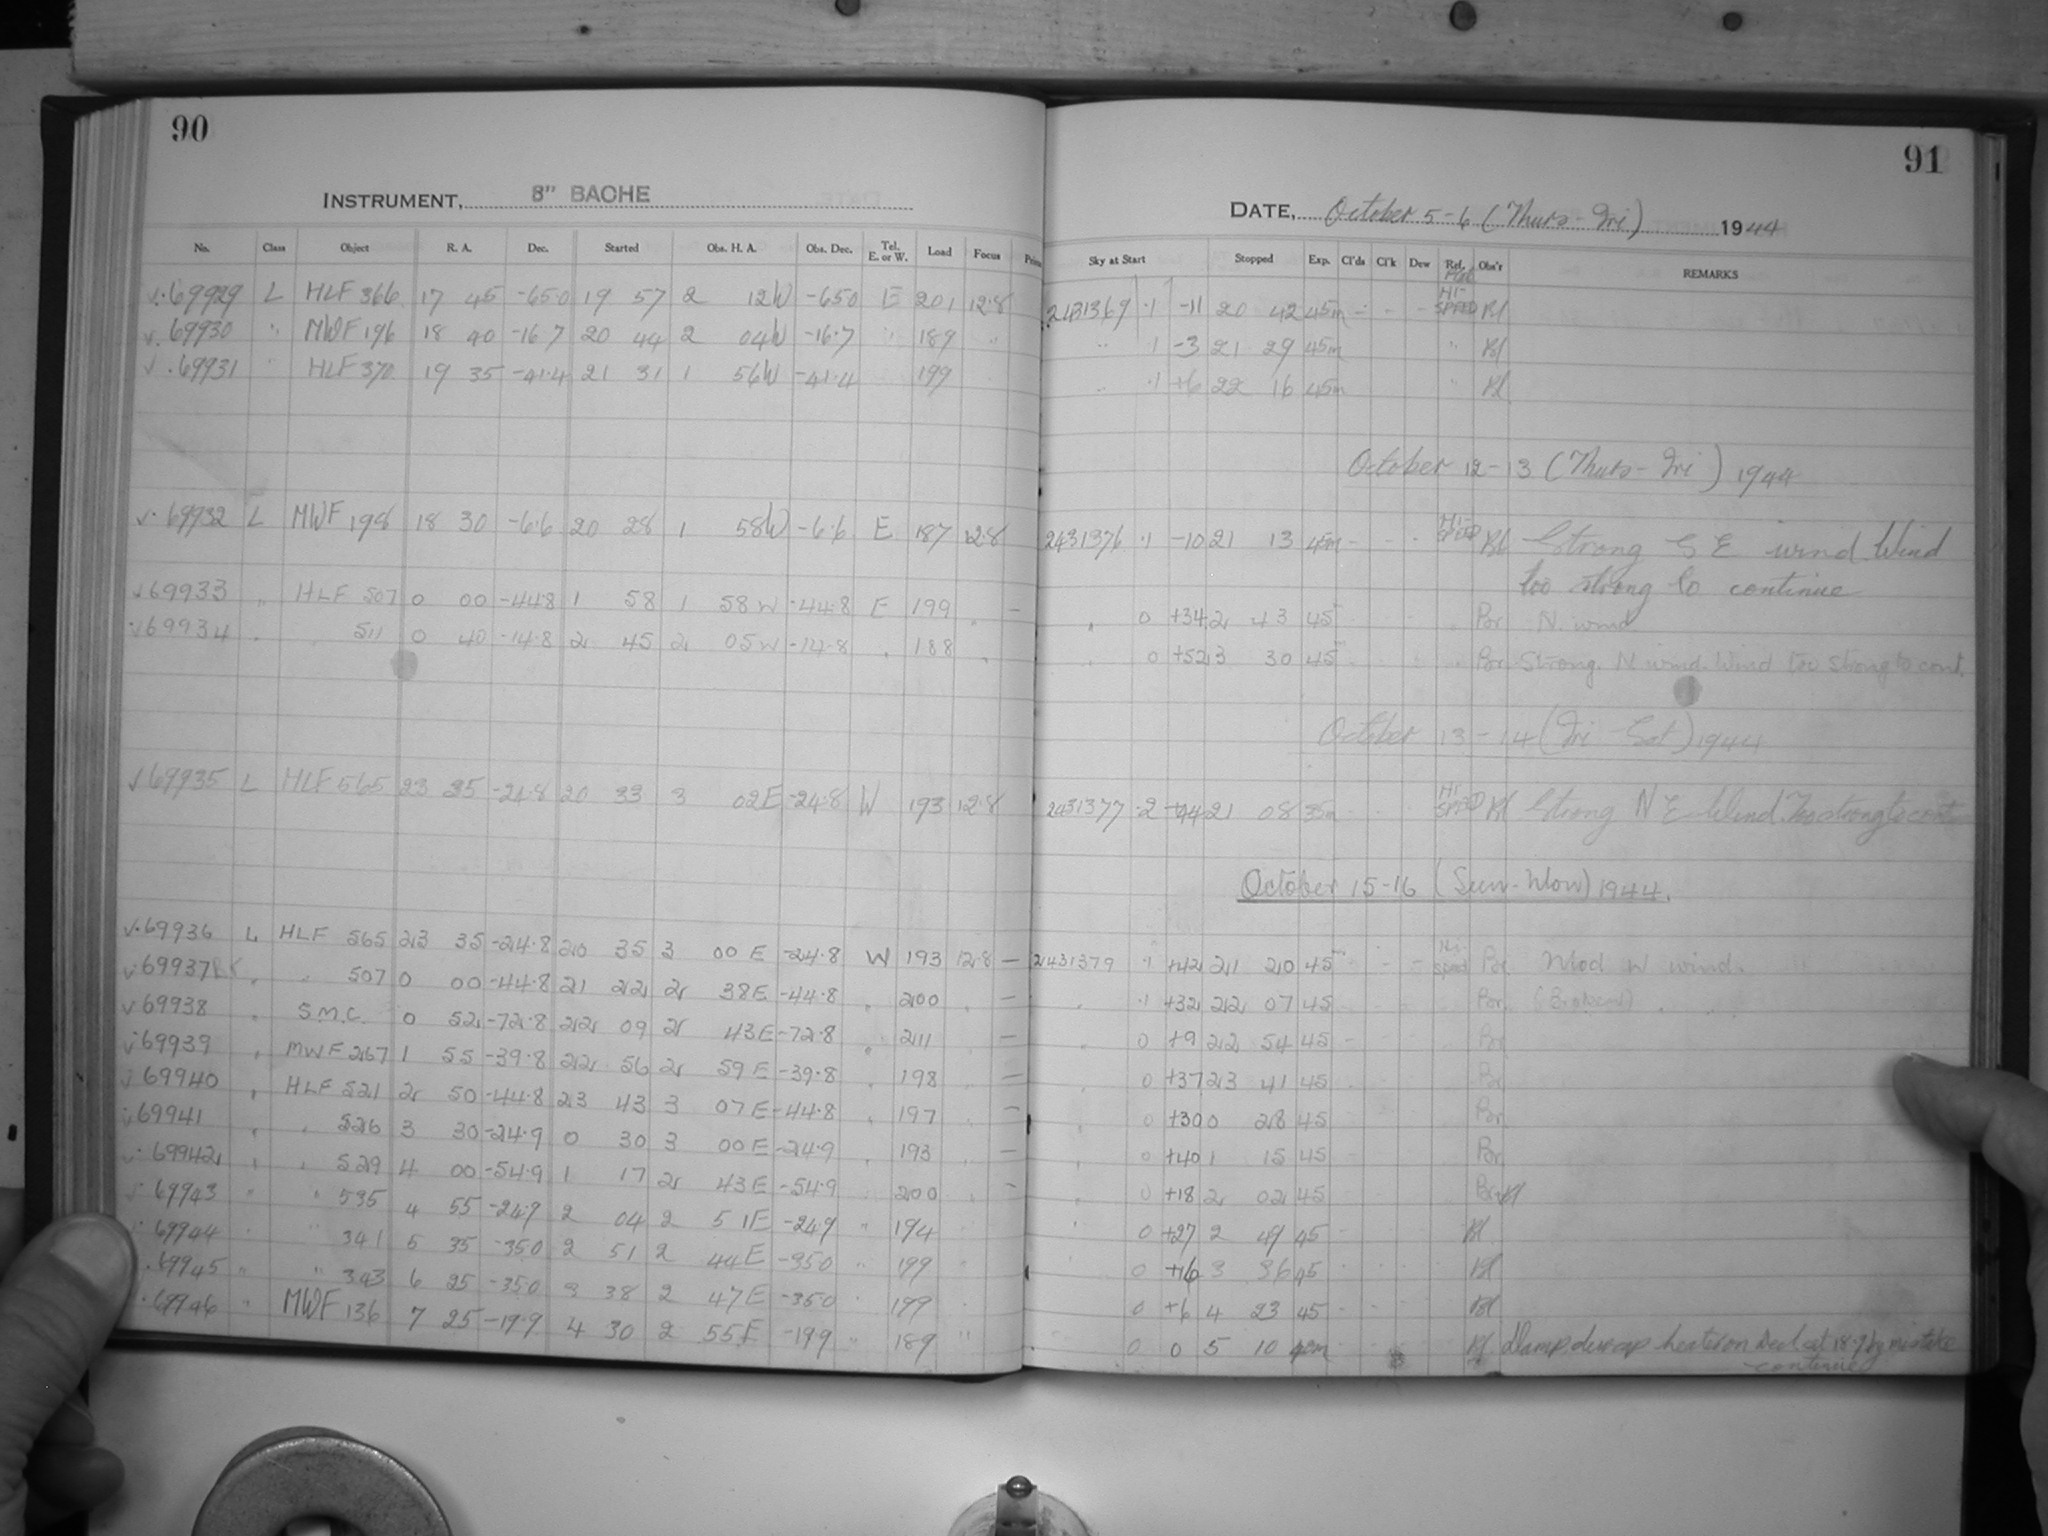 90
INSTRUMENT, 8" BACHE
No. Class Object R. A. Dec. Started Obs. H. A. Obs. Dec. Tel. E. or W. Load Focus
69929 L HLF 366 17 45 -65.0 19 57 2 12W -65.0 E 201 12.8
69930 " MWF 196 18 40 -16.7 20 44 2 04W -16.7 " 189 "
69931 " HLF 370 19 35 -41.4 21 31 1 56W -41.4 199
69932 L MWF 198 18 30 -6.6 20 28 1 58W -6.6 E 187 12.8
69933 " HLF 507 0 00 -44.8 1 58 1 58W -44.8 E 199 " -
69934 " " 511 0 40 -14.8 2 45 2 05W -14.8 " 188 "
69935 L HLF 565 23 35 -24.8 20 33 3 02E -24.8 W 193 12.8
69936 L HLF 565 23 35 -24.8 20 35 3 00E -24.8 W 193 12.8 -
69937 " " 507 0 00 -44.8 21 22 2 38E -44.8 " 200 " -
69938 " S.M.C. 0 52 -72.8 22 09 2 43E -72.8 " 211 -
69939 " MWF 267 1 55 -39.8 22 56 2 59E -39.8 " 198 " -
69940 " HLF 521 2 50 -44.8 23 43 3 07E -44.8 " 197 " -
69941 " " 526 3 30 -24.9 0 30 3 00E -24.9 " 193 " -
69942 " " 529 4 00 -54.9 1 17 2 43E -54.9 " 200 " -
69943 " " 535 4 55 -24.9 2 04 2 51E -24.9 " 194 "
69944 " " 341 5 35 -35.0 2 51 2 44E -35.0 " 199 "
69945 " " 343 6 25 -35.0 3 38 2 47E -35.0 " 199 "
69946 " MWF 136 7 25 -19.9 4 30 2 55E -19.9 " 189 "
91
DATE, October 5-6 (Thurs-Fri) 1944
Sky at Start Stopped Exp. Cl'ds Cl'k Dew Ref. Obs'r REMARKS
2431369 .1 -11 20 42 45m - - - HI-SPEED Bl
" .1 -3 21 29 45m " Bl
" .1 +6 22 16 45m " Bl
October 12-13 (Thurs-Fri) 1944
2431376 .1 -10 21 13 45m - - - HI-SPEED Bl Strong S E wind. Wind
too strong to continue
" 0 +34 2 43 45 " Br N. wind
" 0 +52 3 30 45 " Br Strong N wind. Wind too strong to cont.
October 13-14 (Fri-Sat) 1944
2431377 .2 +44 21 08 35m - HI-SPEED Bl Strong N E Wind. Too strong to cont.
October 15-16 (Sun-Mon) 1944.
2431379 .1 +42 21 20 45 - - - HI-SPEED Br Mod W wind.
" .1 +32 22 07 45 Br (Broken)
" 0 +9 22 54 45 - Br
" 0 +37 23 41 45 Br
" 0 +30 0 28 45 Br
" 0 +40 1 15 45 Br
" 0 +18 2 02 45 Br-Bl
" 0 +27 2 49 45 - Bl
" 0 +16 3 36 45 Bl
0 +6 4 23 45 - Bl
0 0 5 10 Bl Damp dewcap heater on Decl at 18.9 by mistake
continue